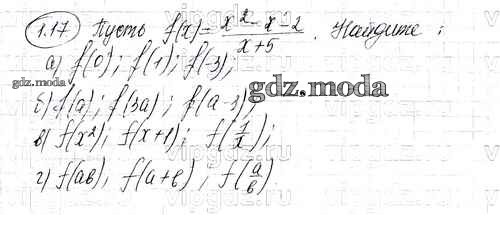 1.17 Пусть f(x) = (x² - x - 2)/(x + 5). Найдите:
а) f(0); f(1); f(-3);
gdz.moda
б) f(a); f(3a); f(a - 3);
gdz.moda
в) f(x²); f(x+1); f(1/x);
г) f(ab), f(a+b); f(a/b)